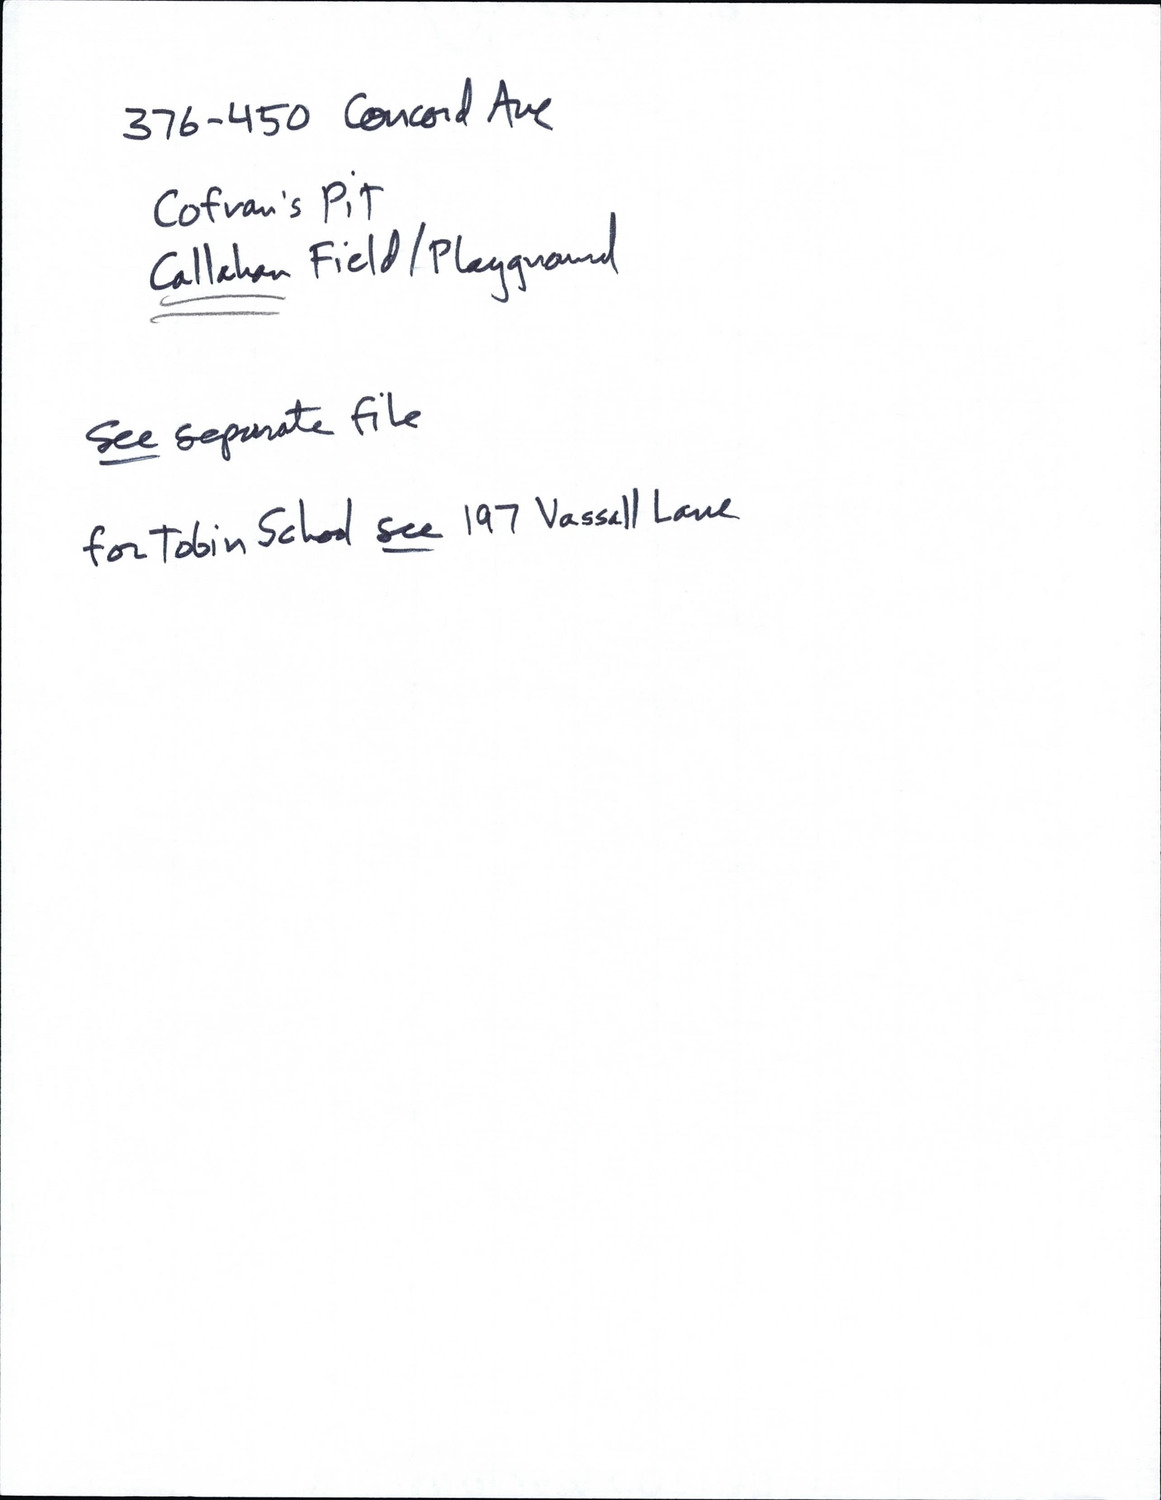 376-450 Concord Ave
Cofran's Pit
Callahan Field/Playground
see separate file
for Tobin School see 197 Vassall Lane